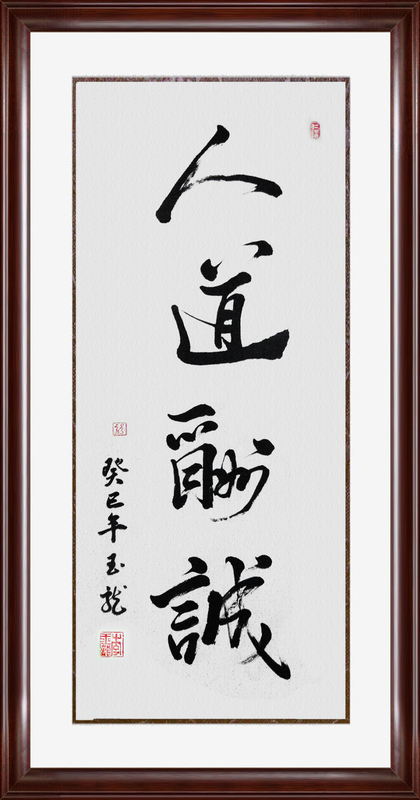 人道酬誠
癸巳年玉龍